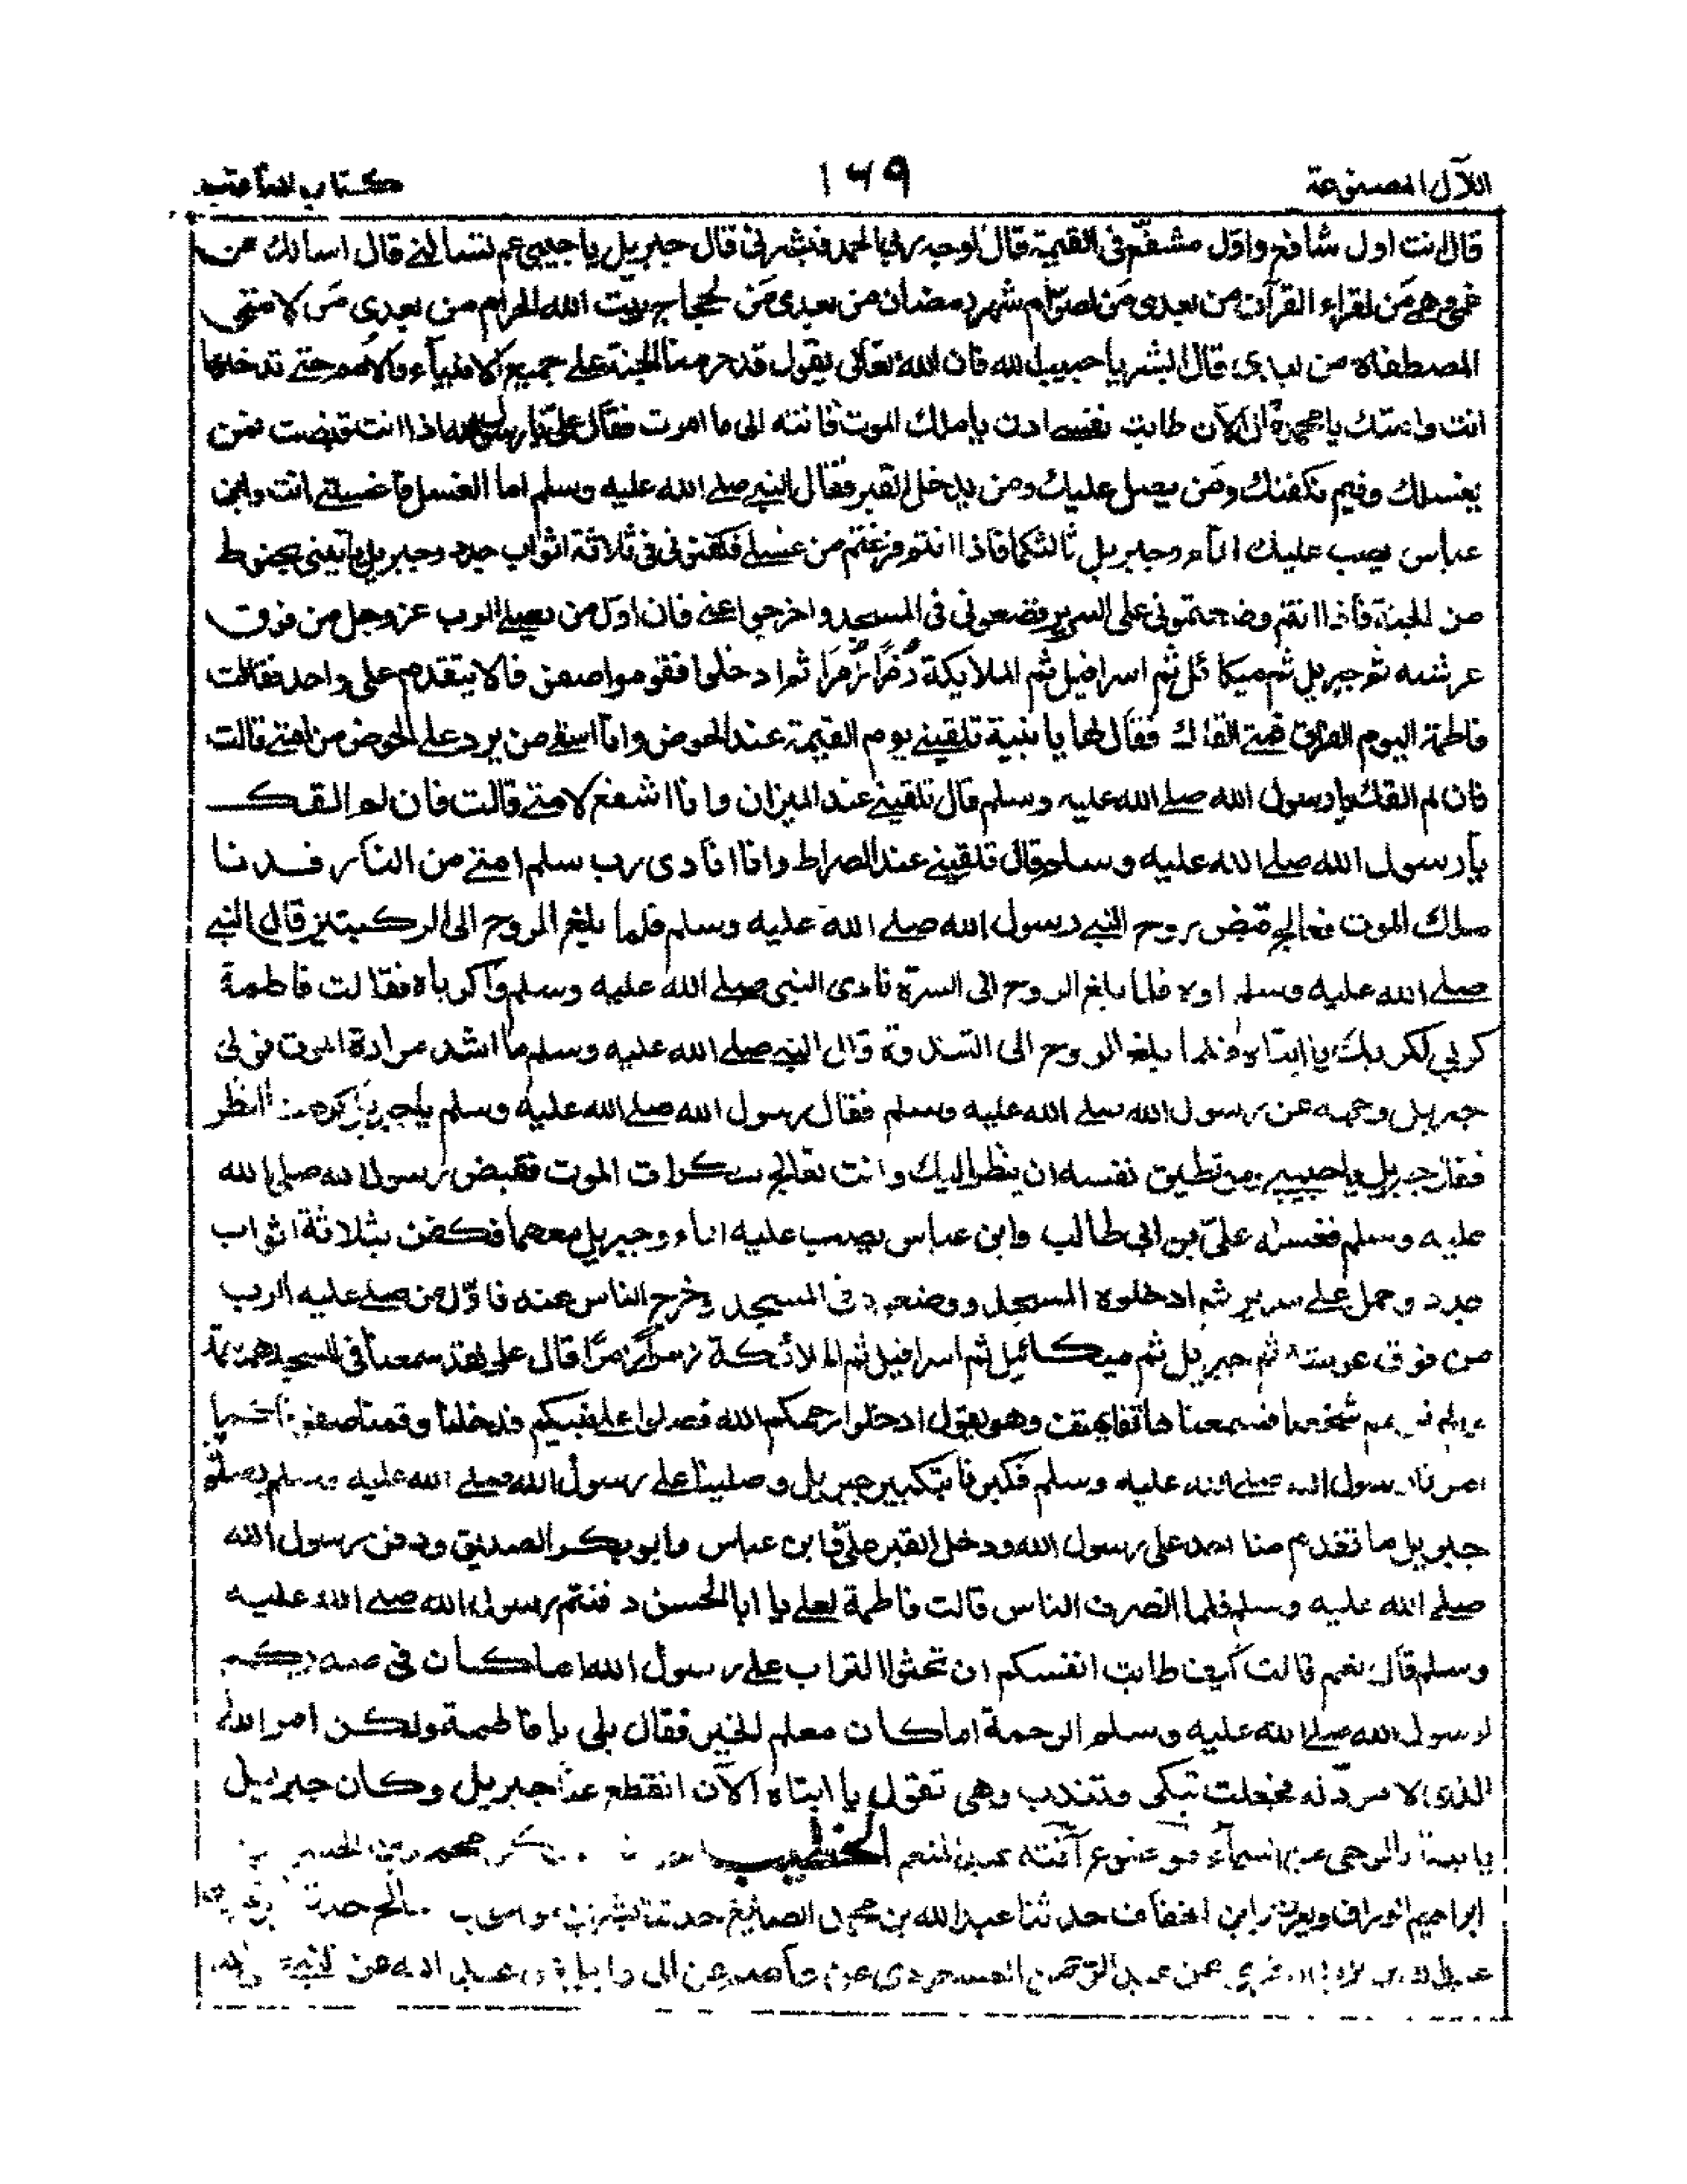 اللآلی المصنوعة ١٦٩ کتاب المناقب
قال انت اول شافع واوّل مشفّع فی القیمة قال لوجه ربی الحمد فبشرنی قال جبریل یا حبیبی عم تسألنی قال اسالك عن
غمی وهمی مَن لقراء القرآن من بعدی مَن لصوّام شهر رمضان من بعدی مَن لحجاج بیت الله الحرام من بعدی مَن لامتی
المصطفاة من بعدی قال ابشر یا حبیب الله فان الله تعالی یقول قد حرمت الجنة علی جمیع الانبیآء والامم حتی تدخلها
انت وامتك یا محمد قال الآن طابت نفسی ادن یا ملك الموت فانته الی ما امرت فقال علیّ یا رسول الله اذا انت قبضت فمن
یغسلك وفیم نکفنك ومَن یصلی علیك ومن یدخل القبر فقال النبی صلی الله علیه وسلم اما الغسل فاغسلنی انت وابن
عباس یصب علیك المآء وجبریل ثالثکما فاذا انتم فرغتم من غسلی فکفنونی فی ثلاثة اثواب جدد وجبریل یآتینی بحنوط
من الجنة فأذا انتم وضعتمونی علی السریر فضعونی فی المسجد واخرجوا عنی فان اوّل من یصلی الرب عز وجل من فوق
عرشه ثم جبریل ثم میکائل ثم اسرافیل ثم الملایکة زُمَرًا زُمَرًا ثم ادخلوا فقوموا صفوفا لا یتقدم علی واحد فقالت
فاطمة الیوم الفراق فمتی القاك فقال لها یا بنیة تلقینی یوم القیمة عند الحوض وانا اسقی من یرد علی الحوض من امتی قالت
فان لم القك یا رسول الله صلی الله علیه وسلم قال تلقینی عند المیزان وانا اشفع لامتی قالت فان لم القك
یا رسول الله صلی الله علیه وسلم قال تلقینی عند الصراط وانا انادی رب سلم امتی من النار فدنا
ملك الموت فعالج قبض روح النبی رسول الله صلی الله علیه وسلم فلما بلغ الروح الی الرکبتین قال النبی
صلی الله علیه وسلم اوه فلما بلغ الروح الی السرة نادی النبی صلی الله علیه وسلم وآکرباه فقالت فاطمة
کربی لکربك یا ابتاه فلما بلغ الروح الی الثندوة قال النبی صلی الله علیه وسلم ما اشد مرارة الموت فولی
جبریل وجهه عن رسول الله صلی الله علیه وسلم فقال رسول الله صلی الله علیه وسلم یا جبریل کرهت النظر
فقال جبریل یا حبیبی ومن تطیق نفسه ان ینظر الیك وانت تعالج سکرات الموت فقبض رسول الله صلی الله
علیه وسلم فغسله علیّ بن ابی طالب وابن عباس یصب علیه الماء وجبریل معهما فکفن بثلاثة اثواب
جدد وحمل علی سریر ثم ادخلوه المسجد ووضعوه فی المسجد وخرج الناس عنه فاوّل من صلی علیه الرب
من فوق عرشه ثم جبریل ثم میکائیل ثم اسرافیل ثم الملائکة زمرًا زمرًا قال علی لقد سمعنا فی المسجد همهمة
ولم نر لهم شخصا فسمعنا هاتفا یهتف وهو یقول ادخلوا رحمکم الله فصلوا علی نبیکم فدخلنا وقمنا صفوفا کما
امرنا رسول الله صلی الله علیه وسلم فکبرنا بتکبیر جبریل وصلینا علی رسول الله صلی الله علیه وسلم بصلوة
جبریل ما تقدم منا احد علی رسول الله ودخل القبر علیّ وابن عباس وابو بکر الصدیق ودفن رسول الله
صلی الله علیه وسلم فلما انصرف الناس قالت فاطمة لعلی یا ابا الحسن دفنتم رسول الله صلی الله علیه
وسلم قال نعم قالت کیف طابت انفسکم ان تحثوا التراب علی رسول الله اما کان فی صدورکم
لرسول الله صلی الله علیه وسلم الرحمة اما کان معلم الخیر فقال بلی یا فاطمة ولکن امر الله
الذی لا مردّ له فجعلت تبکی وتندب وهی تقول یا ابتاه الآن انقطع عنا جبریل وکان جبریل
یاتینا بالوحی من السمآء موضوع آفته عبد المنعم الخطیب محمد بن الحسین بن
ابراهیم الوراق ویعرف بابن الخفاف حدثنا عبد الله بن محمد الصائغ حدثنا بشر بن موسی
عن عبد الرحمن المسعودی عن عاصم عن ابی وایل عن عبد الله عن النبی